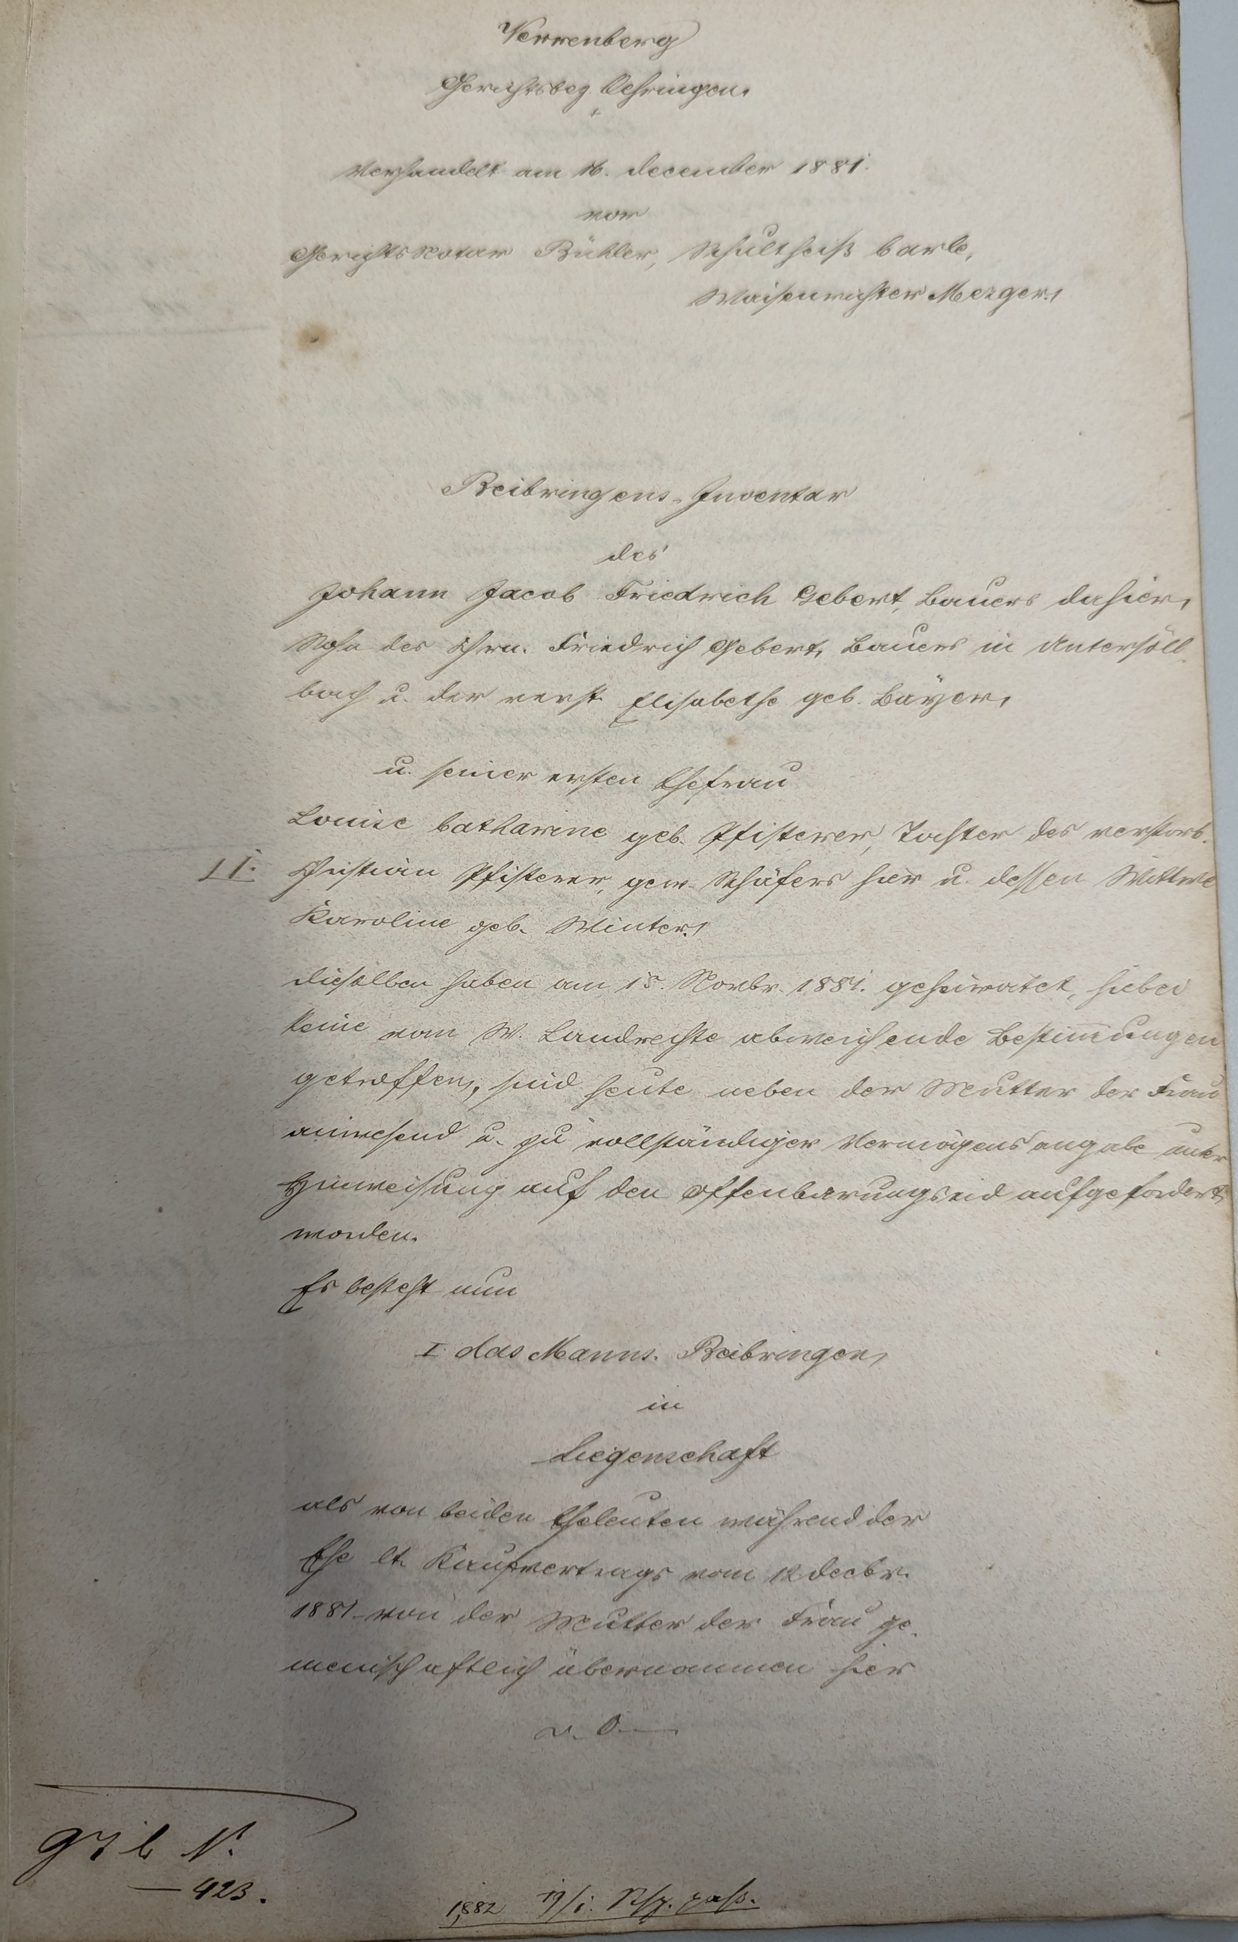 Verrenberg
Gerichtsbez. Oehringen.
Verhandelt am 16. December 1881.
vor
GerichtsNotar Bühler, Schultheiß Carle,
Waisenrichter Mezger,
Beibringens-Inventar
des
Johann Jacob Friedrich Gebert, Bauers dahier,
Sohn des Friedrich Gebert, Bauers in Untersöll
bach u. der verst. Elisabethe geb. Bayer,
u. seiner ersten Ehefrau
Louise Catharine geb. Pfisterer, Tochter des verstorb.
11. Christian Pfisterer, gew. Schäfers hier u. dessen Wittwe
Karoline geb. Winter.
Dieselben haben am 15. Novbr. 1881. geheiratet, hiebei
keine vom W. Landrechte abweichende Bestimmungen
getroffen, sind heute neben der Mutter der Frau
anwesend u. zu vollständiger Vermögensangabe unter
Hinweisung auf den Offenbarungseid aufgefordert
worden.
Es besteht nun
I. das Manns-Beibringen,
in
Liegenschaft
als von beiden Eheleuten während der
Ehe lt. Kaufvertrags vom 12 Decbr.
1881 von der Mutter der Frau ge-
meinschaftlich übernommen hier
v. 0.—
N.
— 423.
1882 19/1.